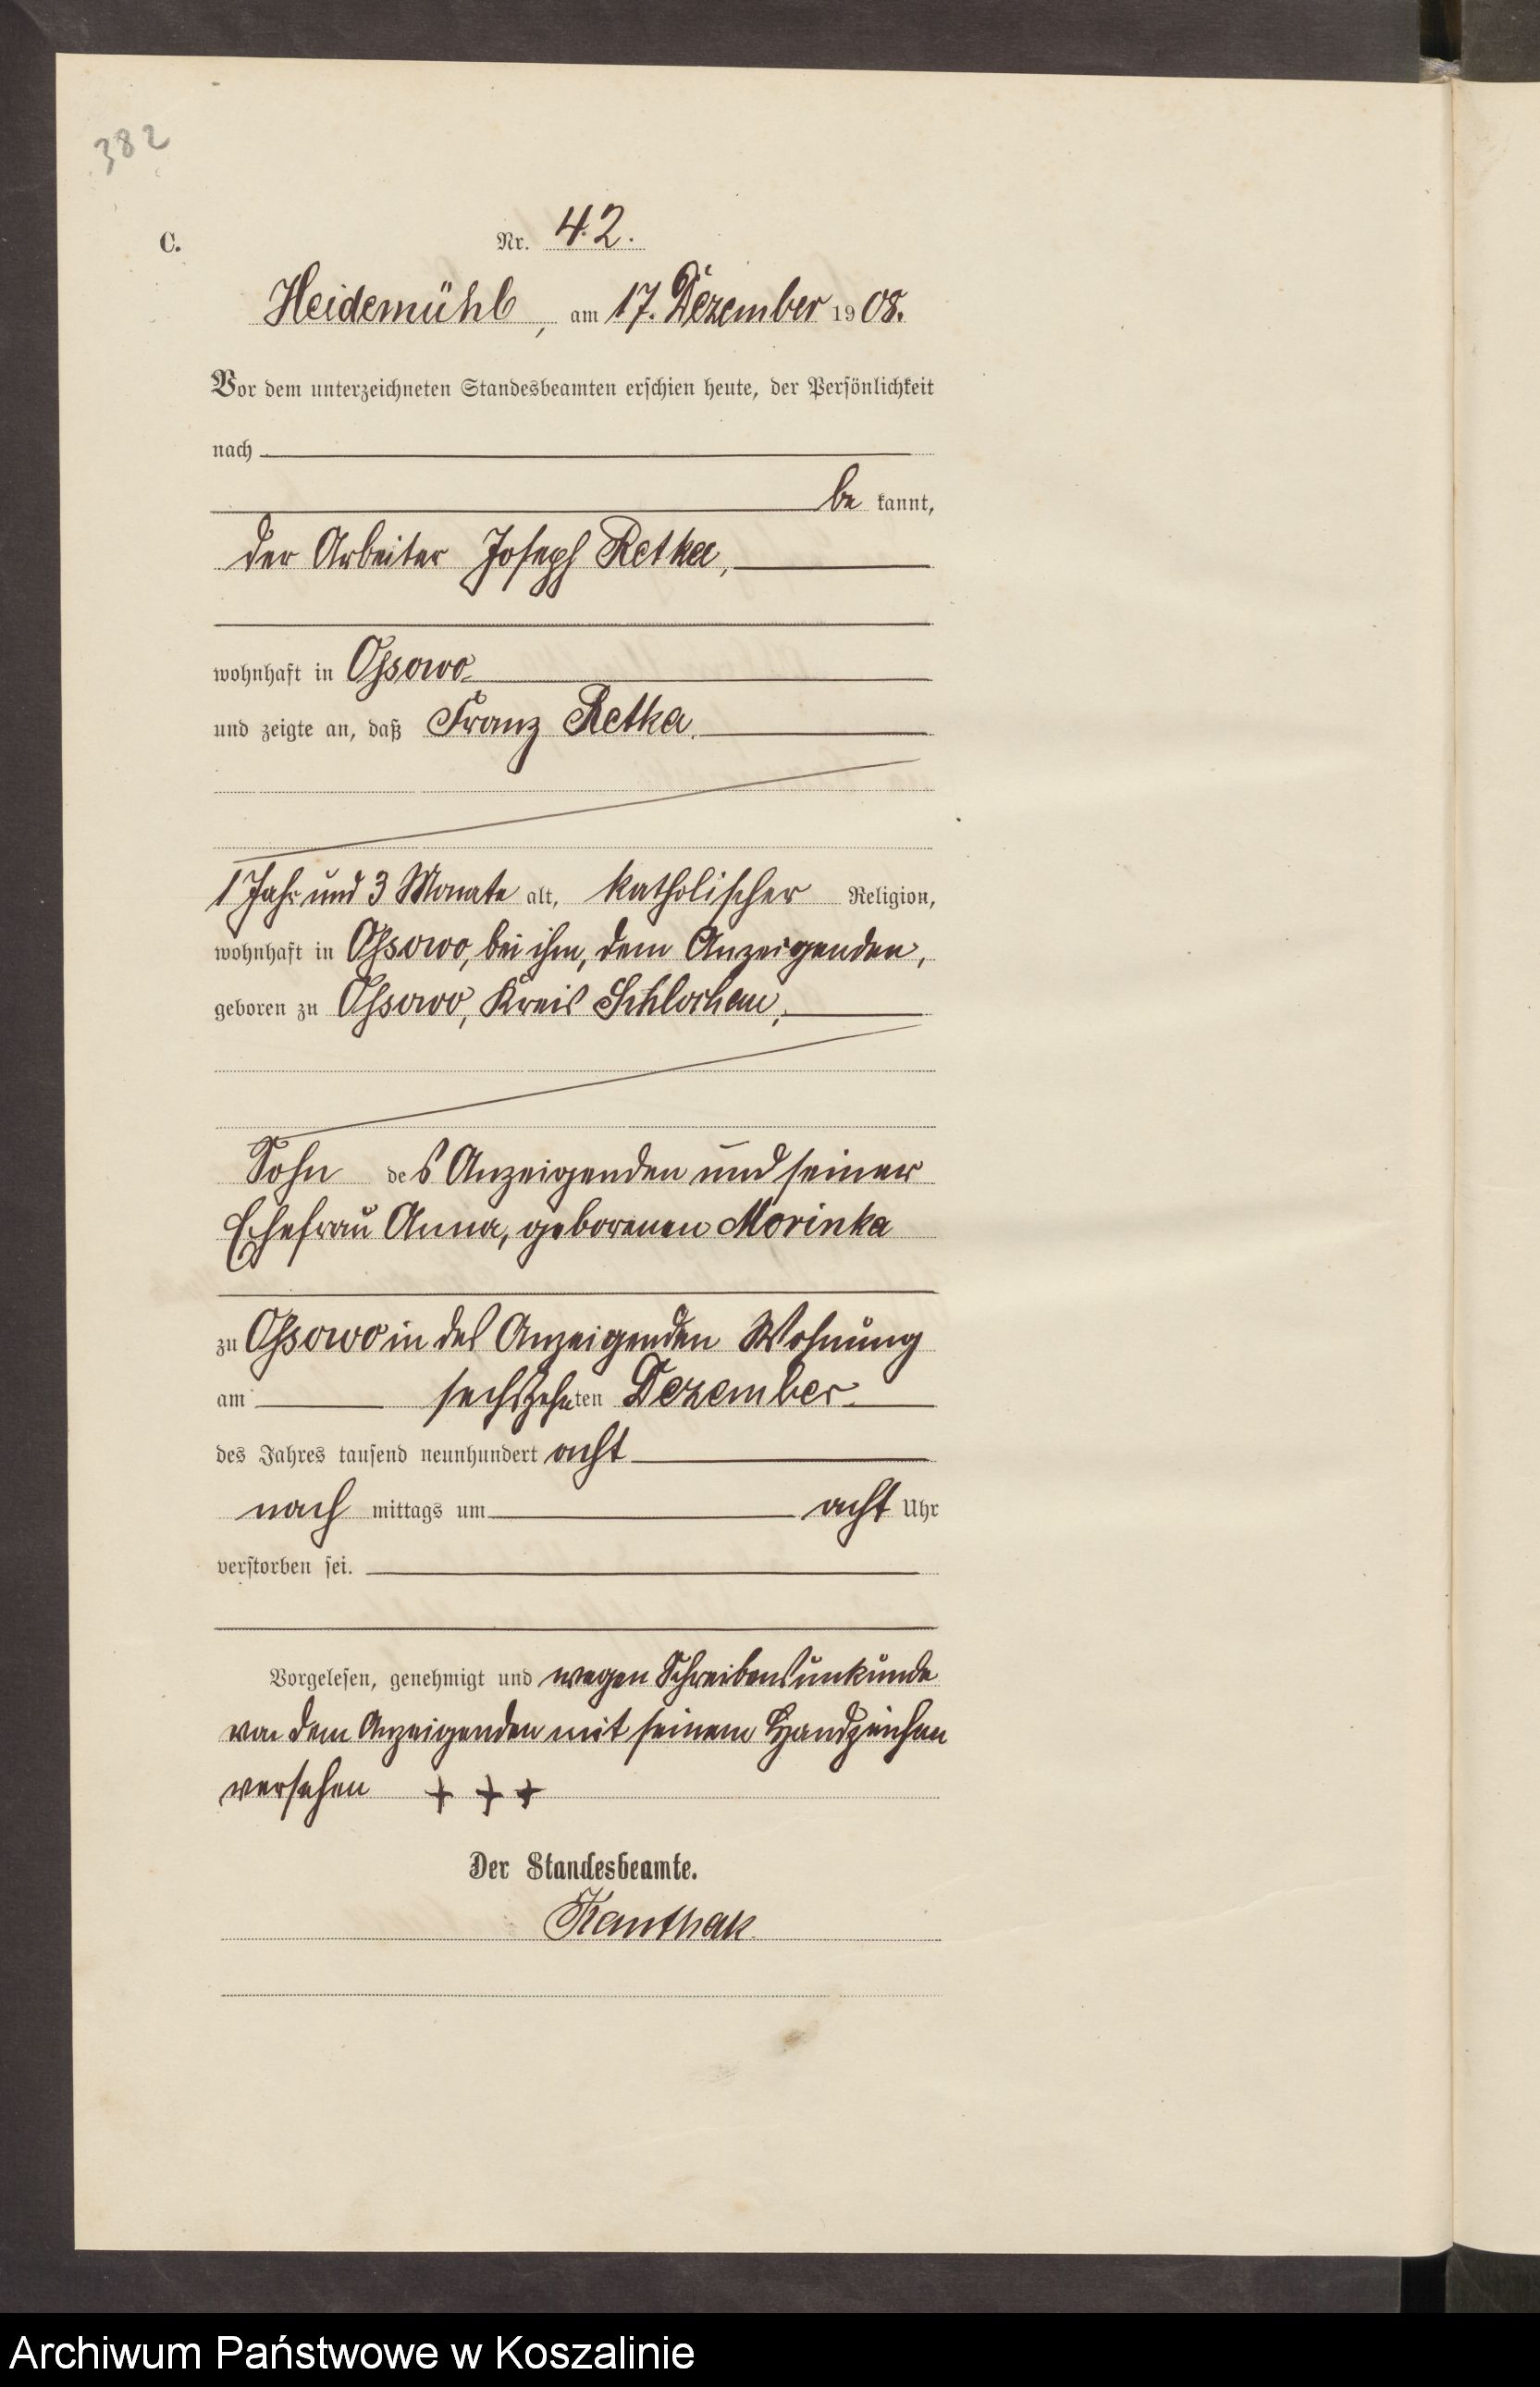 382
C.
Nr. 42.
Heidemühl, am 17. Dezember 1908.
Vor dem unterzeichneten Standesbeamten erschien heute, der Persönlichkeit
nach
be kannt,
der Arbeiter Joseph Retka,
wohnhaft in Ossowo
und zeigte an, daß Franz Retka,
1 Jahr und 3 Monate alt, katholischer Religion,
wohnhaft in Ossowo, bei ihm, dem Anzeigenden,
geboren zu Ossowo, Kreis Schlochau,
Sohn des Anzeigenden und seiner
Ehefrau Anna, geborenen Morinka
zu Ossowo in des Anzeigenden Wohnung
am sechszehnten Dezember
des Jahres tausend neunhundert acht
nach mittags um acht Uhr
verstorben sei.
Vorgelesen, genehmigt und wegen Schreibensunkunde
von dem Anzeigenden mit seinem Handzeichen
versehen + + +
Der Standesbeamte.
Kanthak
Archiwum Państwowe w Koszalinie